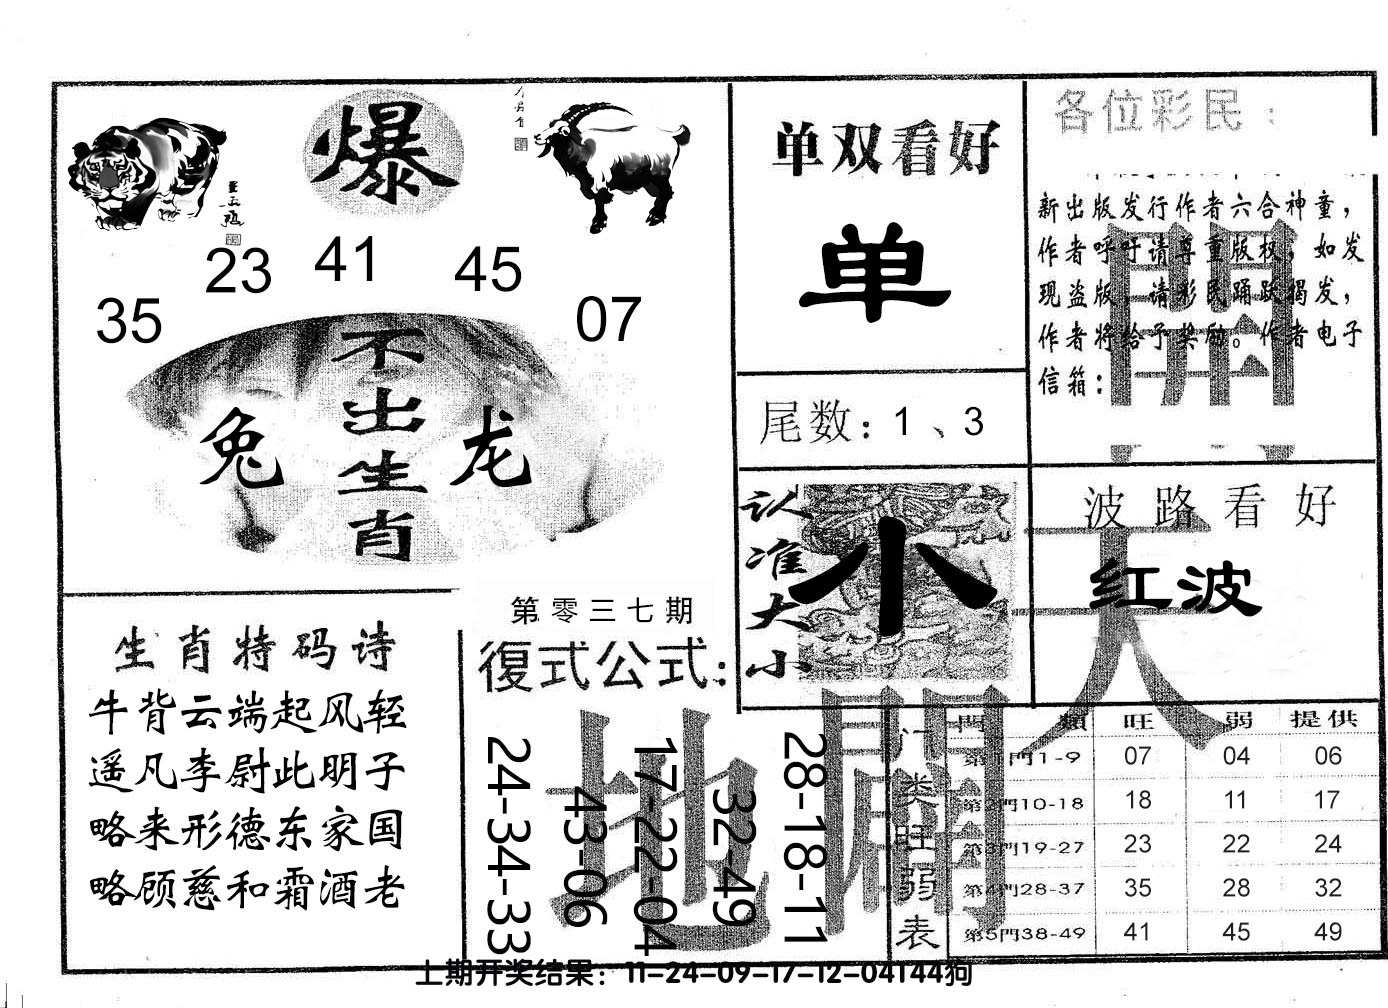 爆
23 41 45
35 07
不出生肖
兔 龙
单双看好
单
尾数：1、3
各位彩民：
新出版发行作者六合神童，
作者呼吁请尊重版权，如发
现盗版，请彩民踊跃揭发，
作者将给予奖励。作者电子
信箱：
認准大小
小
波路看好
红波
天
開
地
生肖特码诗
牛背云端起风轻
遥凡李尉此明子
略来形德东家国
略顾慈和霜酒老
第零三七期
復式公式：
24-34-33
43-06
17-22-04
32-49
28-18-11
门类旺弱表
門類 旺 弱 提供
第1門1-9 07 04 06
第2門10-18 18 11 17
第3門19-27 23 22 24
第4門28-37 35 28 32
第5門38-49 41 45 49
上期开奖结果：11-24-09-17-12-04T44狗